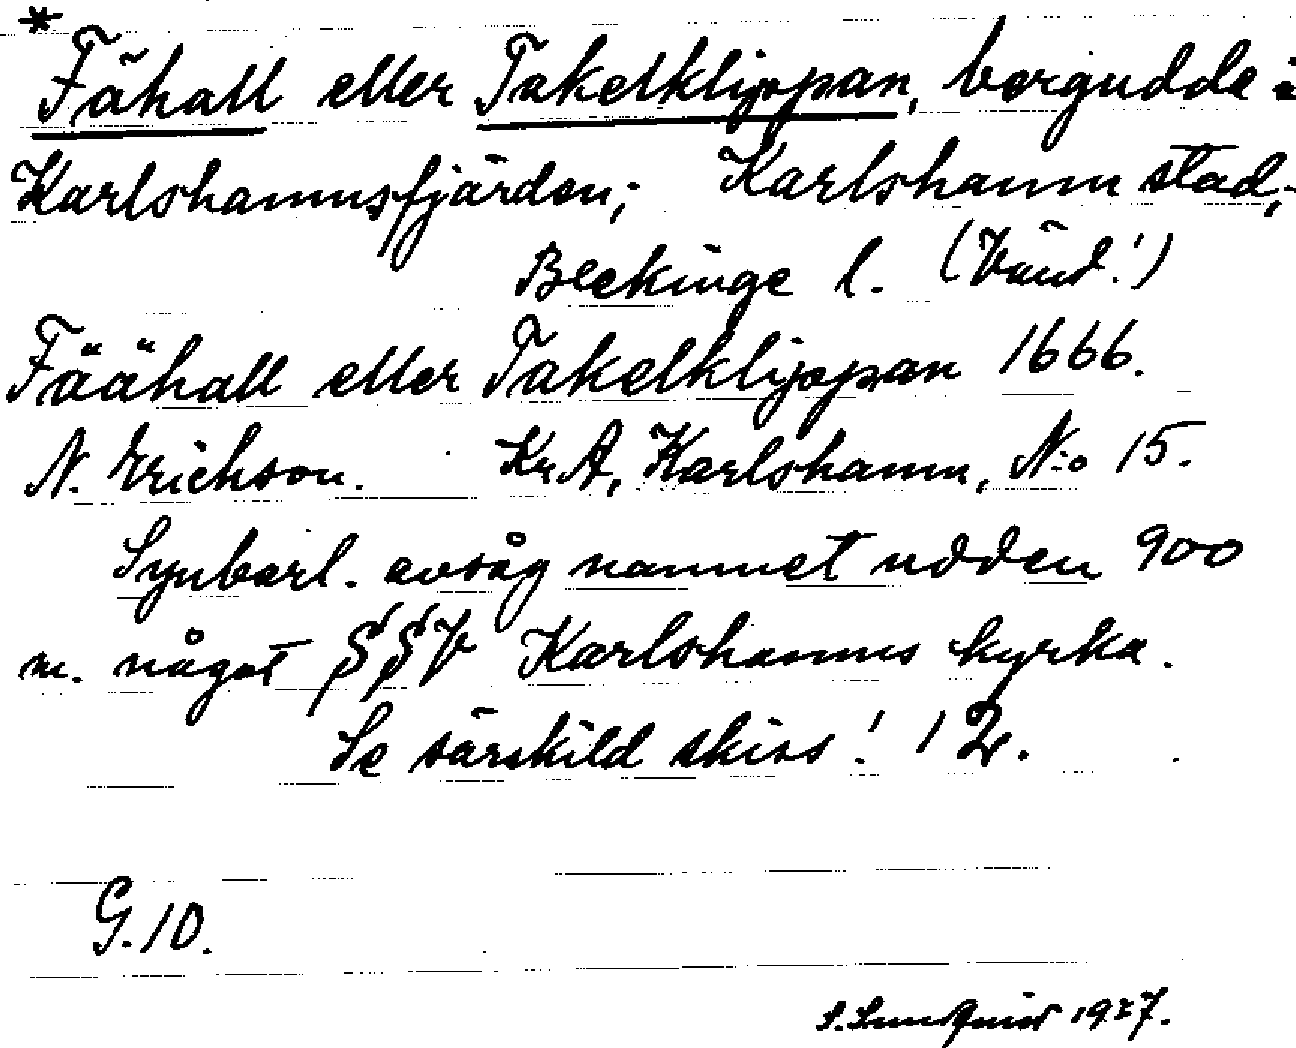 * Fähall eller Takelklippan, bergudde i
Karlshamnsfjärden; Karlshamn stad;
Blekinge l. (Vänd!)
Fäähall eller Takelklippan 1666.
N. Erichson. KrA, Karlshamn, N:o 15.
Synbarl. avsåg namnet udden 900
m. något SSV Karlshamns kyrka.
Se särskild skiss! 12.
G.10.
S. Lundquist 1927.